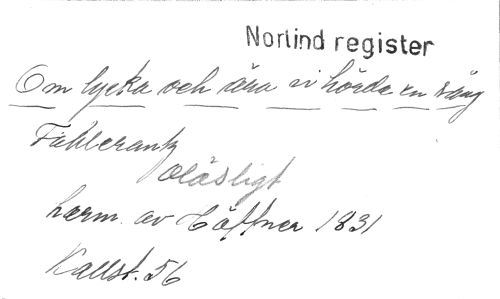 Norlind register
Om lycka och ära vi hörde en sång
Fahlcrantz
oläsligt
harm. av Häffner 1831
Kallst. 56